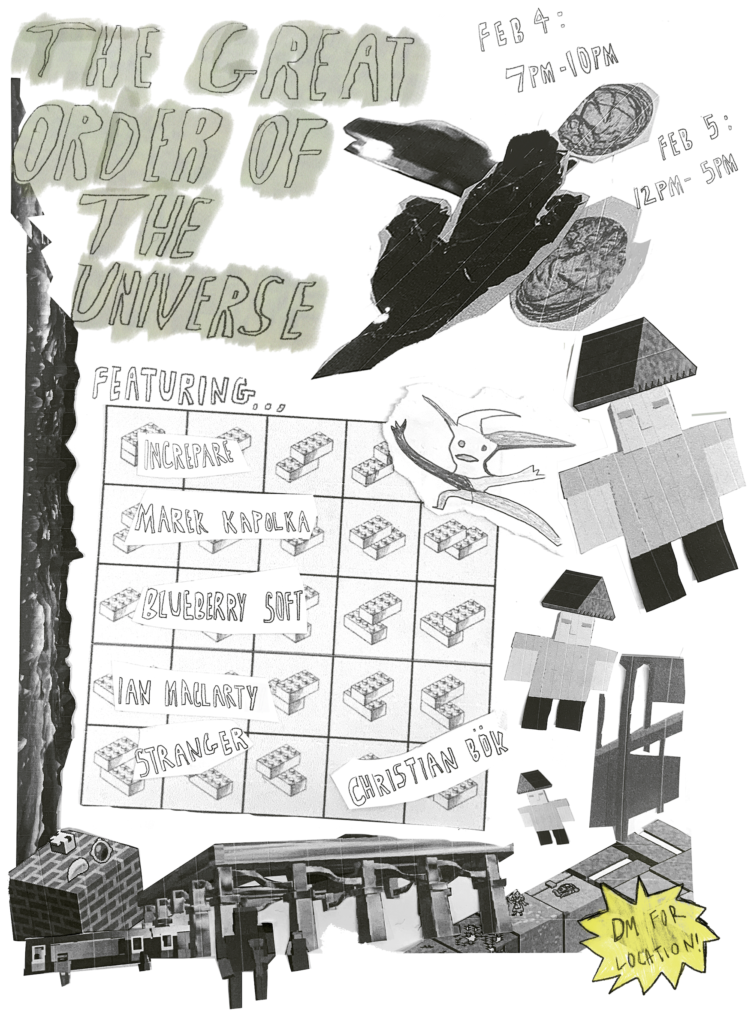 THE GREAT
ORDER OF
THE
UNIVERSE
FEB 4:
7PM-10PM
FEB 5:
12PM- 5PM
FEATURING...
INCREPARE
MAREK KAPOLKA
BLUEBERRY SOFT
IAN MACLARTY
STRANGER
CHRISTIAN BÖK
DM FOR
LOCATION!